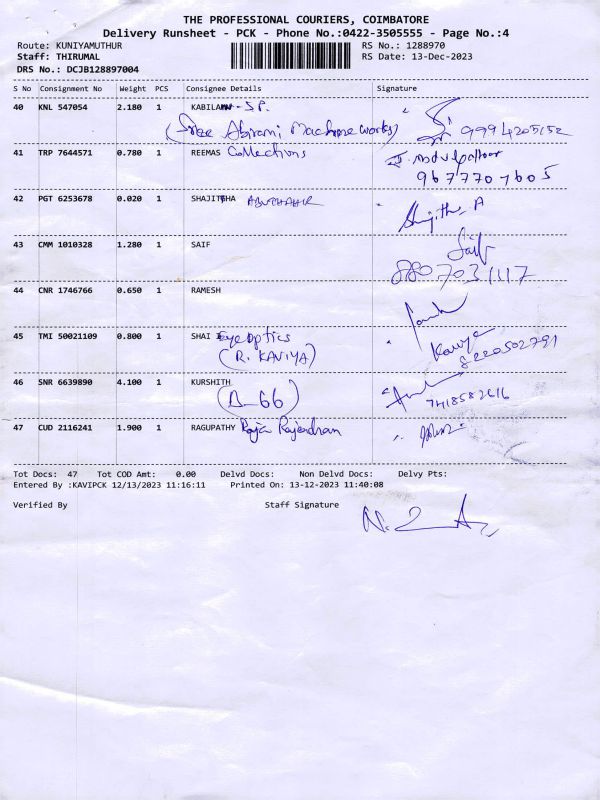 THE PROFESSIONAL COURIERS, COIMBATORE
Delivery Runsheet - PCK - Phone No.:0422-3505555 - Page No.:4
Route: KUNIYAMUTHUR RS No.: 1288970
Staff: THIRUMAL RS Date: 13-Dec-2023
DRS No.: DCJB128897004
S No Consignment No Weight PCS Consignee Details Signature
40 KNL 547054 2.180 1 KABILAN - S.P.
(Sree Abirami Machine Works) 9994205152
41 TRP 7644571 0.780 1 REEMAS Collections
9677707605
42 PGT 6253678 0.020 1 SHAJITHA ABUTHAHIR
Shajitha A
43 CMM 1010328 1.280 1 SAIF Saif
8807031117
44 CNR 1746766 0.650 1 RAMESH
45 TMI 50021109 0.800 1 SHAI Eye Optics Kaviya
(R. KAVIYA) 8220502791
46 SNR 6639890 4.100 1 KURSHITH
(B-66) 7418582616
47 CUD 2116241 1.900 1 RAGUPATHY Raja Rajendran
Tot Docs: 47 Tot COD Amt: 0.00 Delvd Docs: Non Delvd Docs: Delvy Pts:
Entered By :KAVIPCK 12/13/2023 11:16:11 Printed On: 13-12-2023 11:40:08
Verified By Staff Signature